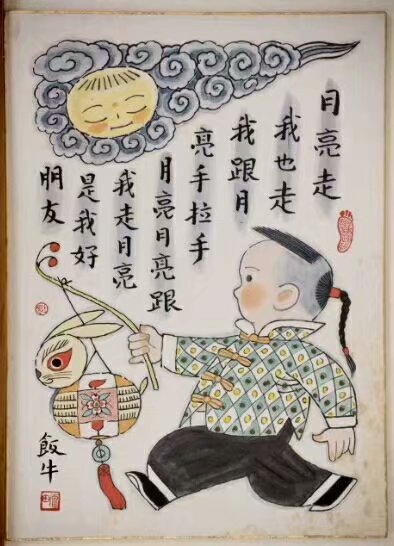 月亮走
我也走
我跟月
亮手拉手
月亮月亮跟
我走月亮
是我好
朋友
飯牛